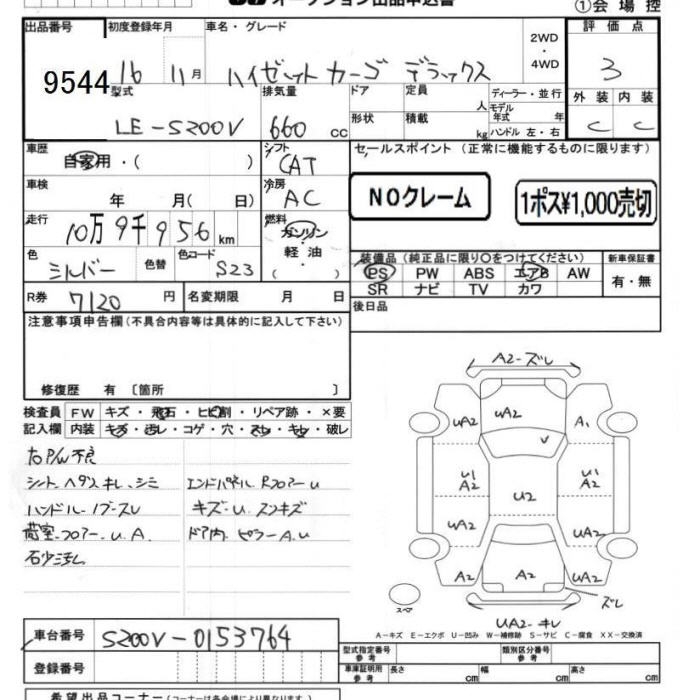 オークション出品申込書
①会場控
出品番号 初度登録年月 車名・グレード 2WD・4WD 評価点
9544 16 11月 ハイゼットカーゴ デラックス 3
型式 排気量 ドア 定員 人 ディーラー・並行 外装 内装
LE-S200V 660cc 形状 積載 kg モデル年式 年 ハンドル 左・右 C C
車歴 自家用・( ) シフト CAT セールスポイント (正常に機能するものに限ります)
車検 年 月( 日) 冷房 AC NOクレーム 1ポス¥1,000売切
走行 10万9千956km 燃料 ガソリン 軽油 ( )
色 シルバー 色替 色コード S23 装備品(純正品に限り○をつけてください) 新車保証書
PS PW ABS エアB AW 有・無
SR ナビ TV カワ
R券 7120円 名変期限 月 日 後日品
注意事項申告欄(不具合内容等は具体的に記入して下さい)
修復歴 有 〔箇所 〕
検査員 FW キズ・飛石・ヒビ割・リペア跡・×要
記入欄 内装 キズ・汚レ・コゲ・穴・スレ・キレ・破レ
右P/W不良
シート・ヘタリ キレ・シミ エンドパネル Rフロアーu
ハンドル・ノブースレ キズ・u
荷室・フロアー・u.A. ドア内 ピラーA.u
A2-ズレ
uA2 uA2 A1
u1 A2 u2 u1 A2
uA2 uA2
A2 A2 uA2
ズレ
スペア
UA2-キレ
A-キズ E-エクボ U-凹み W-補修跡 S-サビ C-腐食 XX-交換済
車台番号 S200V-0153764
登録番号
型式指定番号 参考 類別区分番号 参考
車庫証明用 参考 長さ cm 幅 cm 高さ cm
希望出品コーナー(コーナーは各会場により異なります)